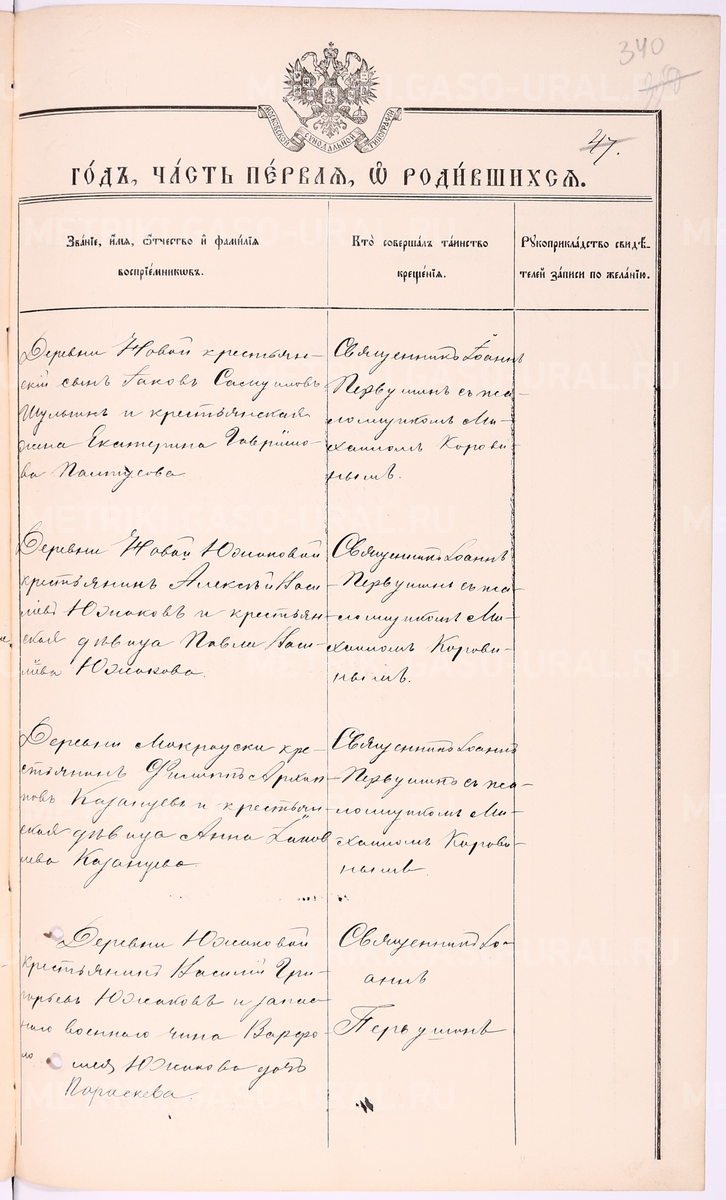 340
47.
МОСКОВСКОЙ СѴНОДАЛЬНОЙ ТИПОГРАФІИ
ГО́ДЪ, ЧА́СТЬ ПЕ́РВАЯ, Ѽ РОДИ́ВШИХСЯ.
Зва́нїе, и҆́мя, ѻ҆́тчество и҆ фами́лїя
воспрїе́мниковъ.
Кто̀ соверша́лъ та́инство
креще́нїя.
Рꙋкоприкла́дство свидѣ́-
телей за́писи по жела́нїю.
Деревни Новой крестьян-
скій сынъ Іаковъ Самуиловъ
Шульгинъ и крестьянская
жена Екатерина Гаврило-
ва
Священникъ Іоаннъ
Первушинъ съ пса-
ломщикомъ Ми-
хаиломъ Корови-
нымъ.
Деревни Новой Южаковой
крестьянинъ Алексѣй Васи
льевъ Южаковъ и крестьян-
ская дѣвица Павла Васи-
льева Южакова.
Священникъ Іоаннъ
Первушинъ съ пса-
ломщикомъ Ми-
хаиломъ Корови-
нымъ.
Деревни кре-
стьянинъ Филиппъ Архип
повъ Казанцевъ и крестьян-
ская дѣвица Анна Іаков
лева Казанцева
Священникъ Іоаннъ
Первушинъ съ пса-
ломщикомъ Ми-
хаиломъ Корови-
нымъ.
Деревни Южаковой
крестьянинъ Василій Гри-
горьевъ Южаковъ и запас-
наго военнаго чина Варфо-
ло мея Южакова дочь
Параскева.
Священникъ Іо-
аннъ
Первушинъ